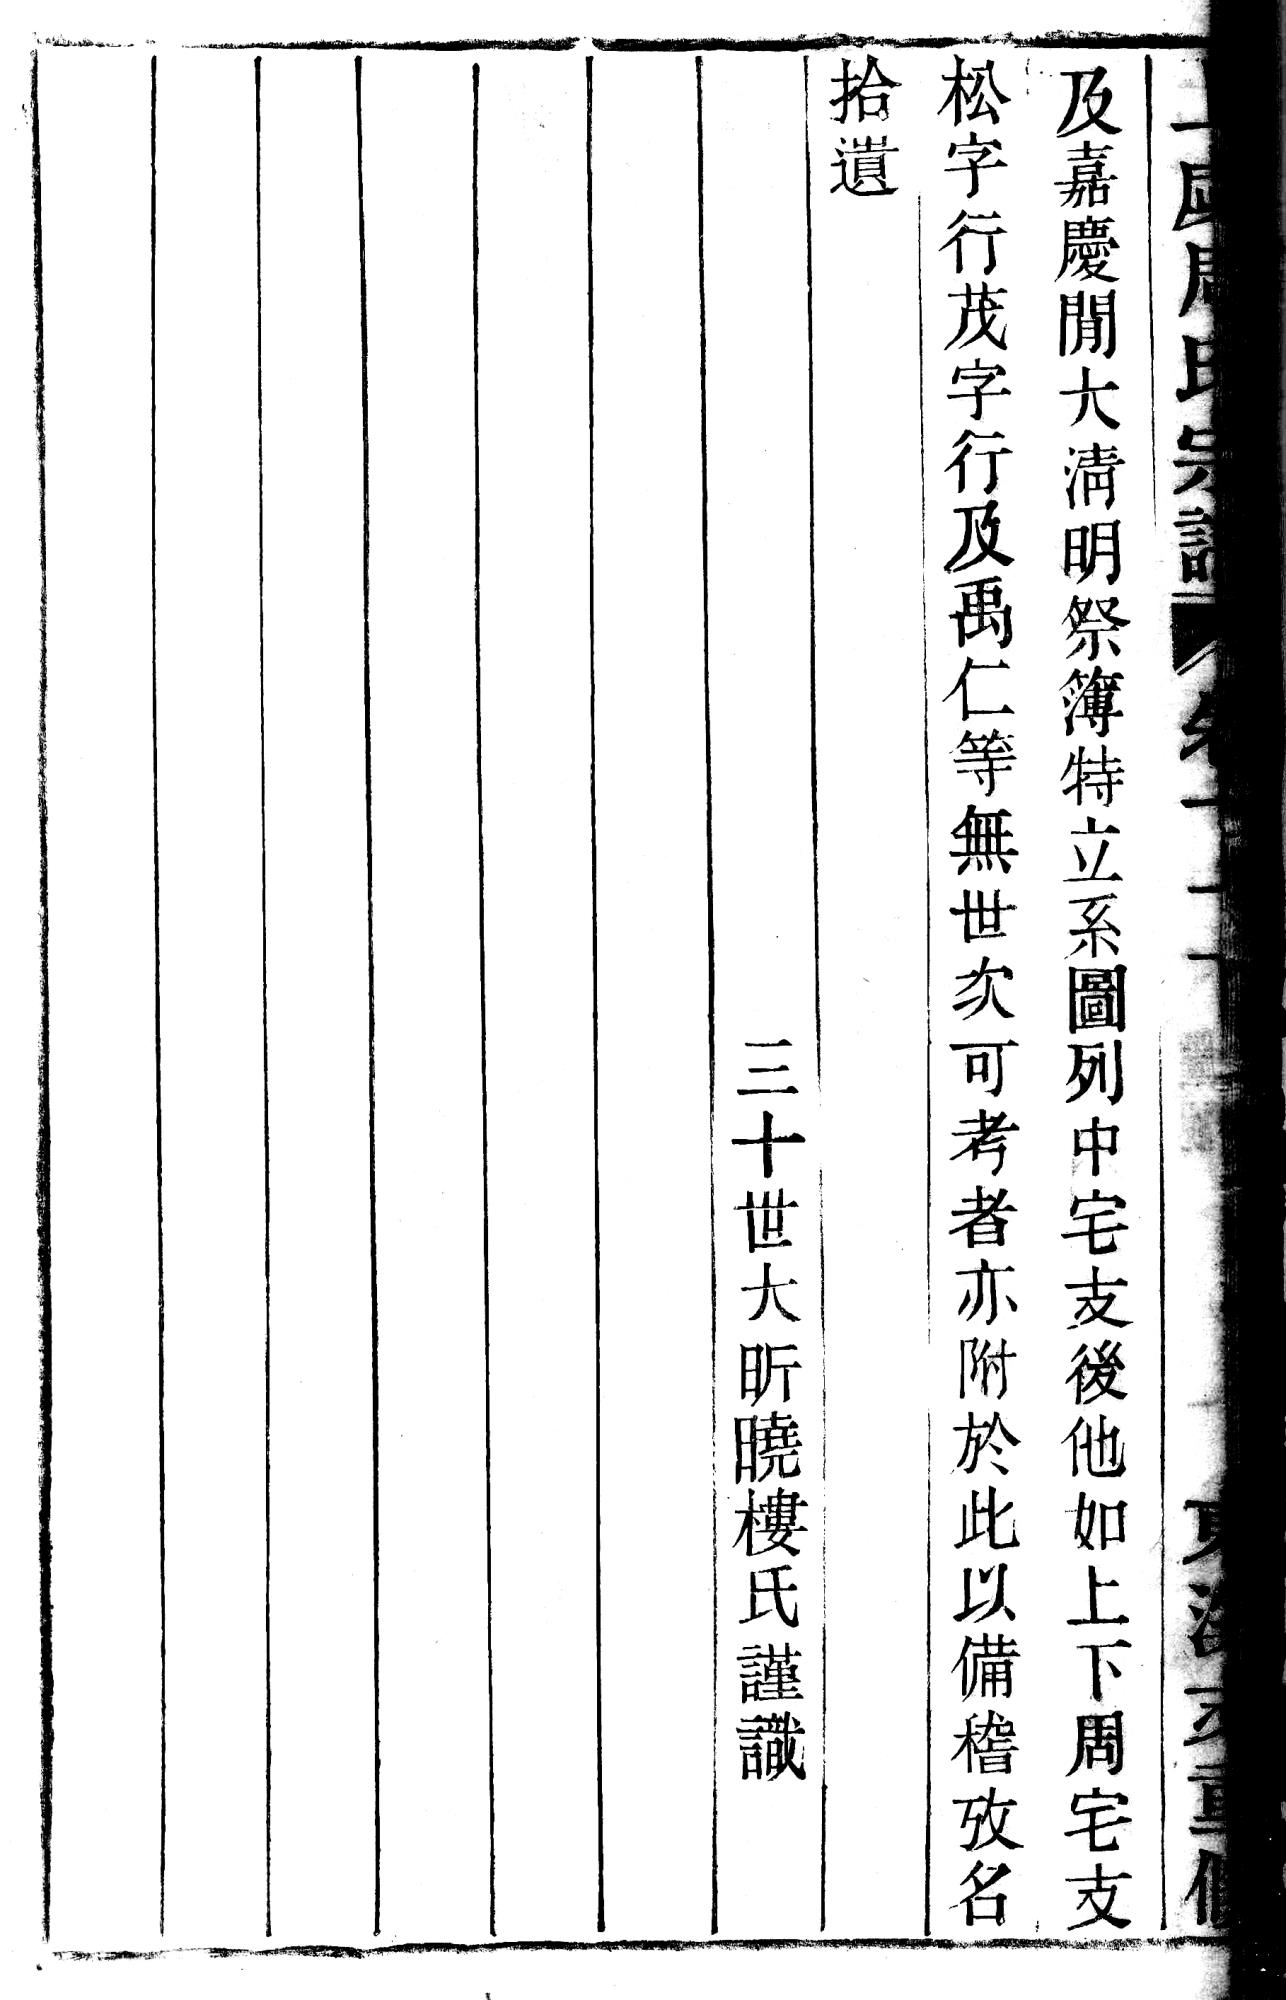 周氏宗譜 卷 重修
及嘉慶閒大淸明祭簿特立系圖列中宅支後他如上下周宅支
松字行茂字行及禹仁等無世次可考者亦附於此以備稽攷名
拾遺
三十世大昕曉樓氏謹識